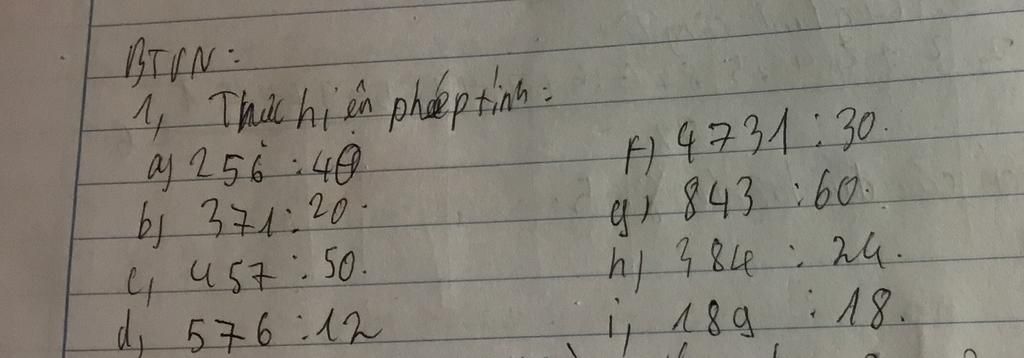 BTVN:
1, Thực hiện phép tính:
a) 256 : 40
b) 371 : 20.
c, 457 : 50.
d, 576 : 12
f) 4731 : 30.
g) 843 : 60.
h) 384 : 24.
i, 189 : 18.